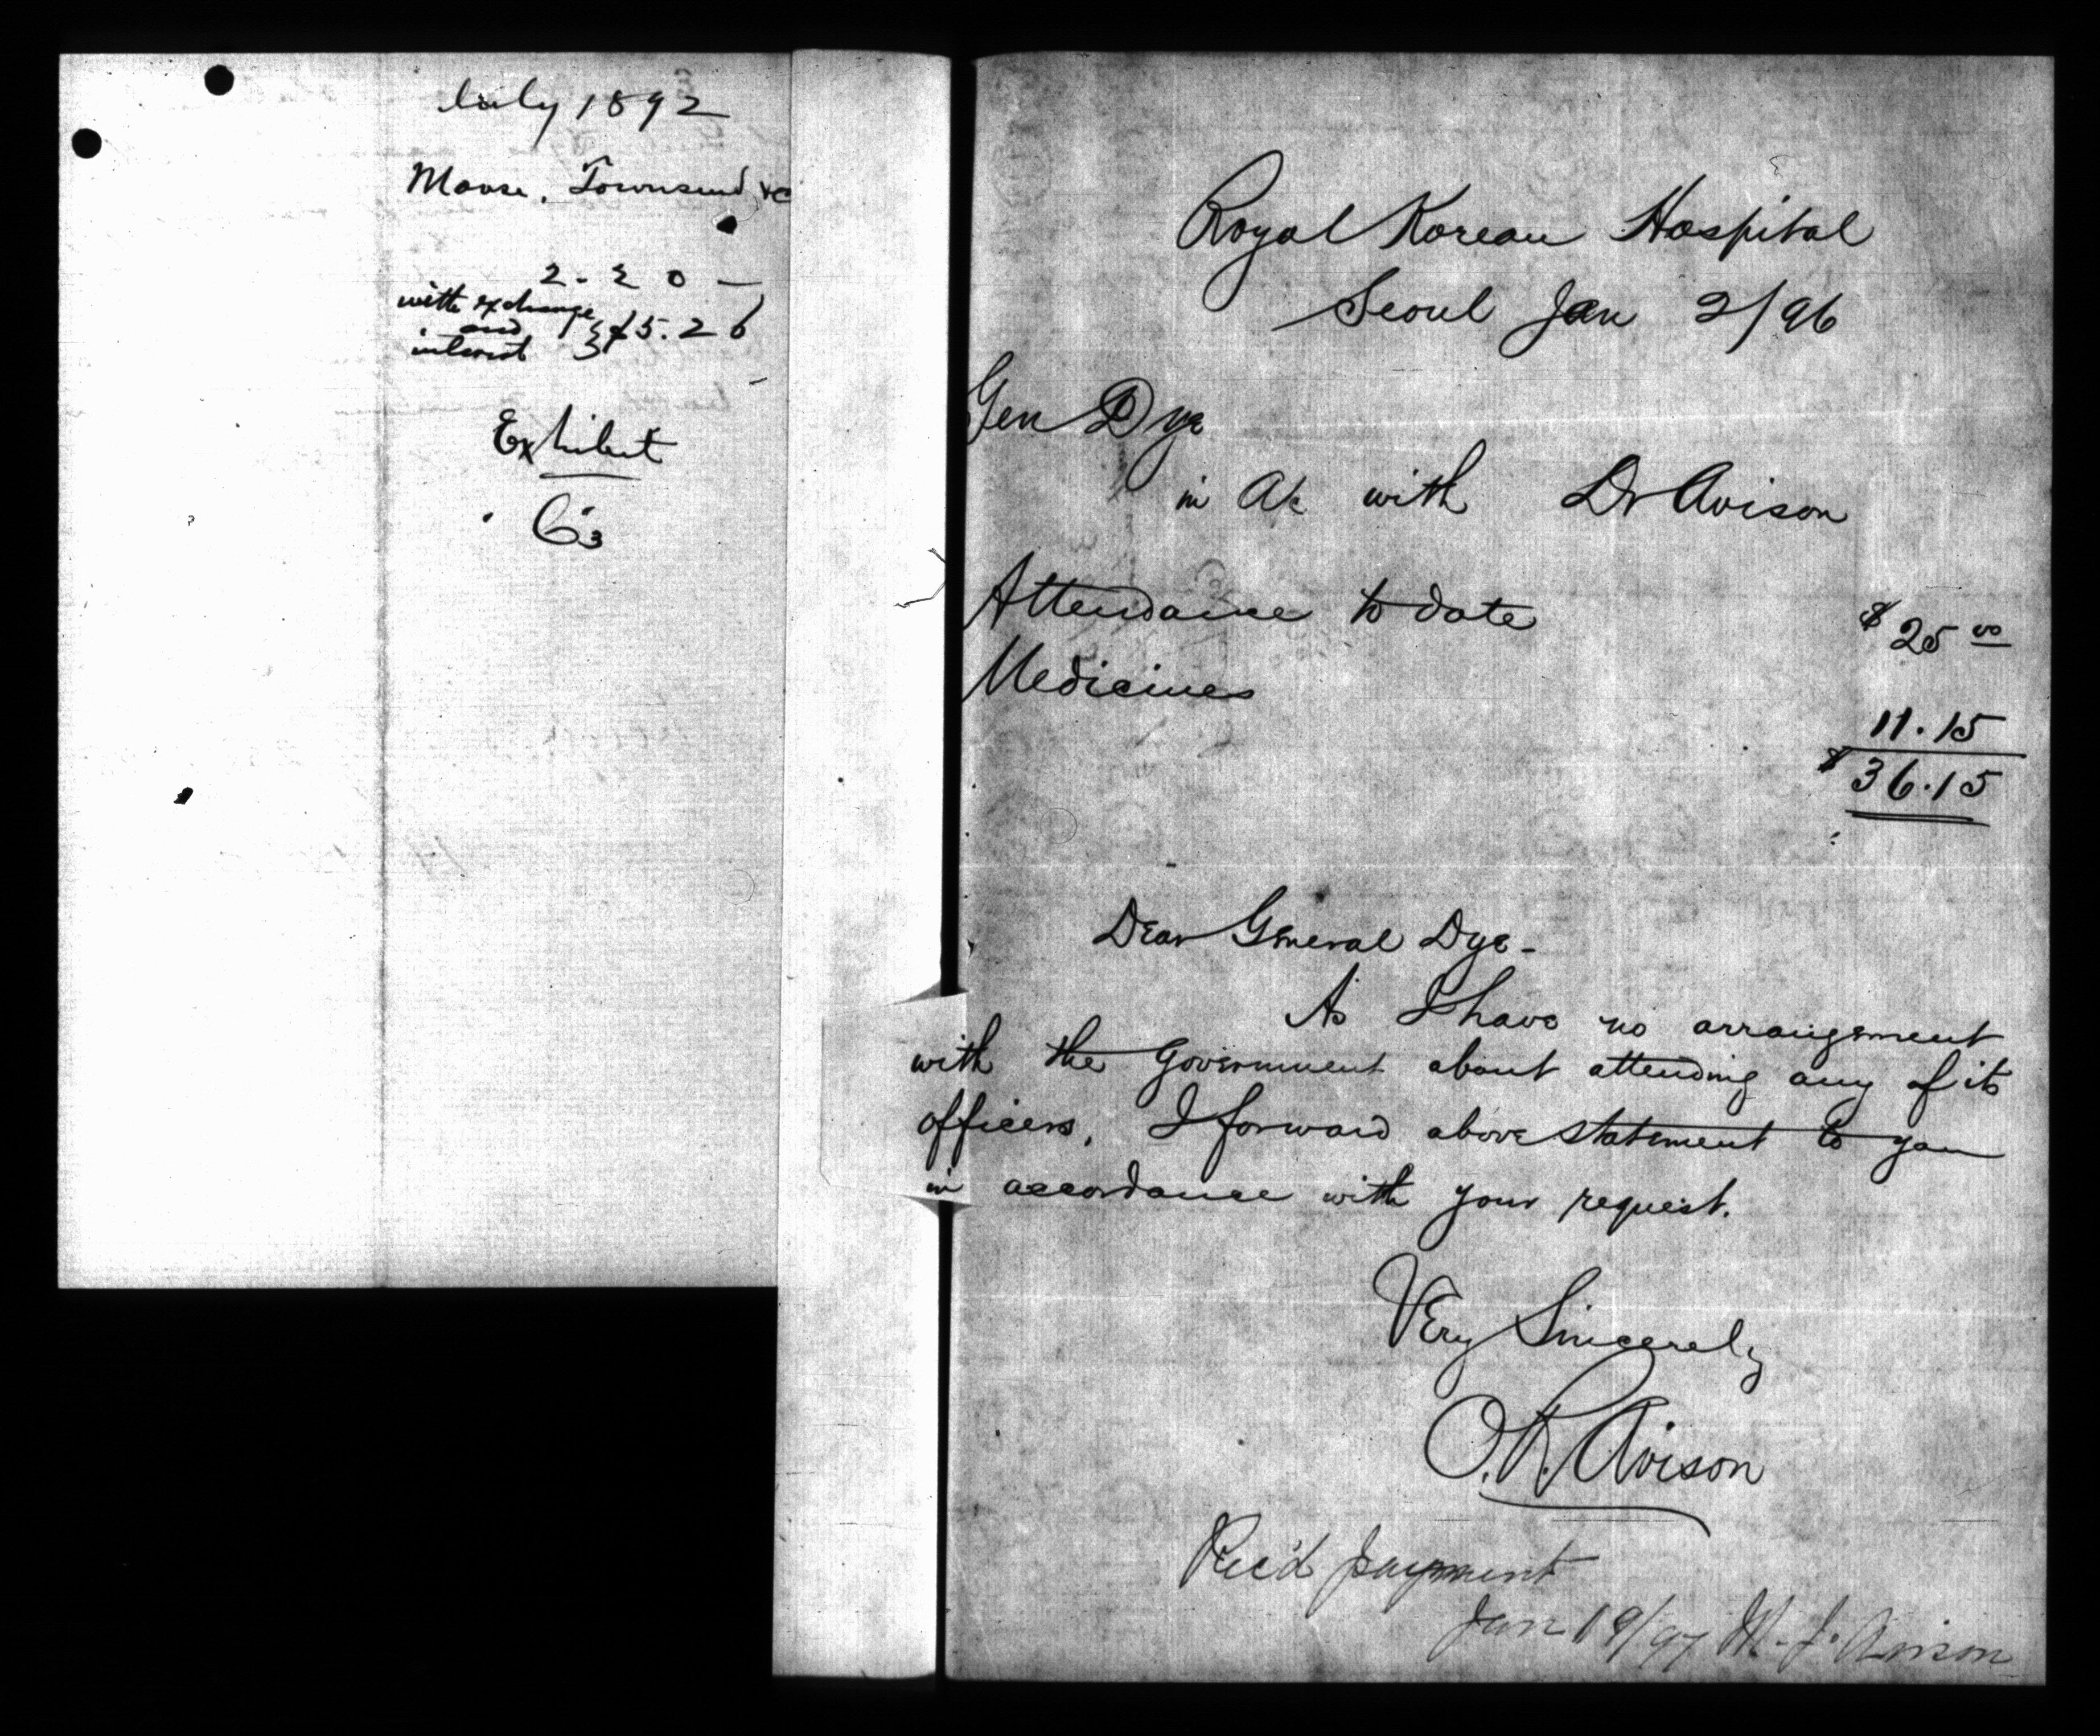 July 1892
Morse, Townsend &c
2 - 20 -
with exchange
and
interest } $5.26
Exhibit
63
Royal Korean Hospital
Seoul Jan 2/96
Gen Dye
in A/c with Dr Avison
Attendance to date $25 00
Medicines
11.15
$36.15
Dear General Dye -
As I have no arrangement
with the Government about attending any of its
officers, I forward above statement to you
in accordance with your request.
Very Sincerely
O. R. Avison
Rec'd payment
Jan 19/97 M. J. Avison